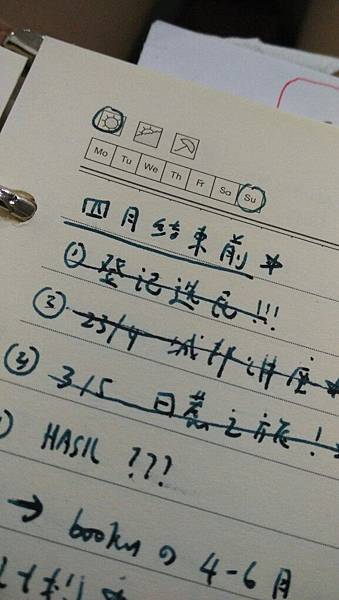 Mo Tu We Th Fr Sa Su
四月结束前 *
① 登记选民!!!
② 23/4 城邦讲座 *
③ 3/5 日惹之旅!
HASIL ???
→ bookn の 4-6月